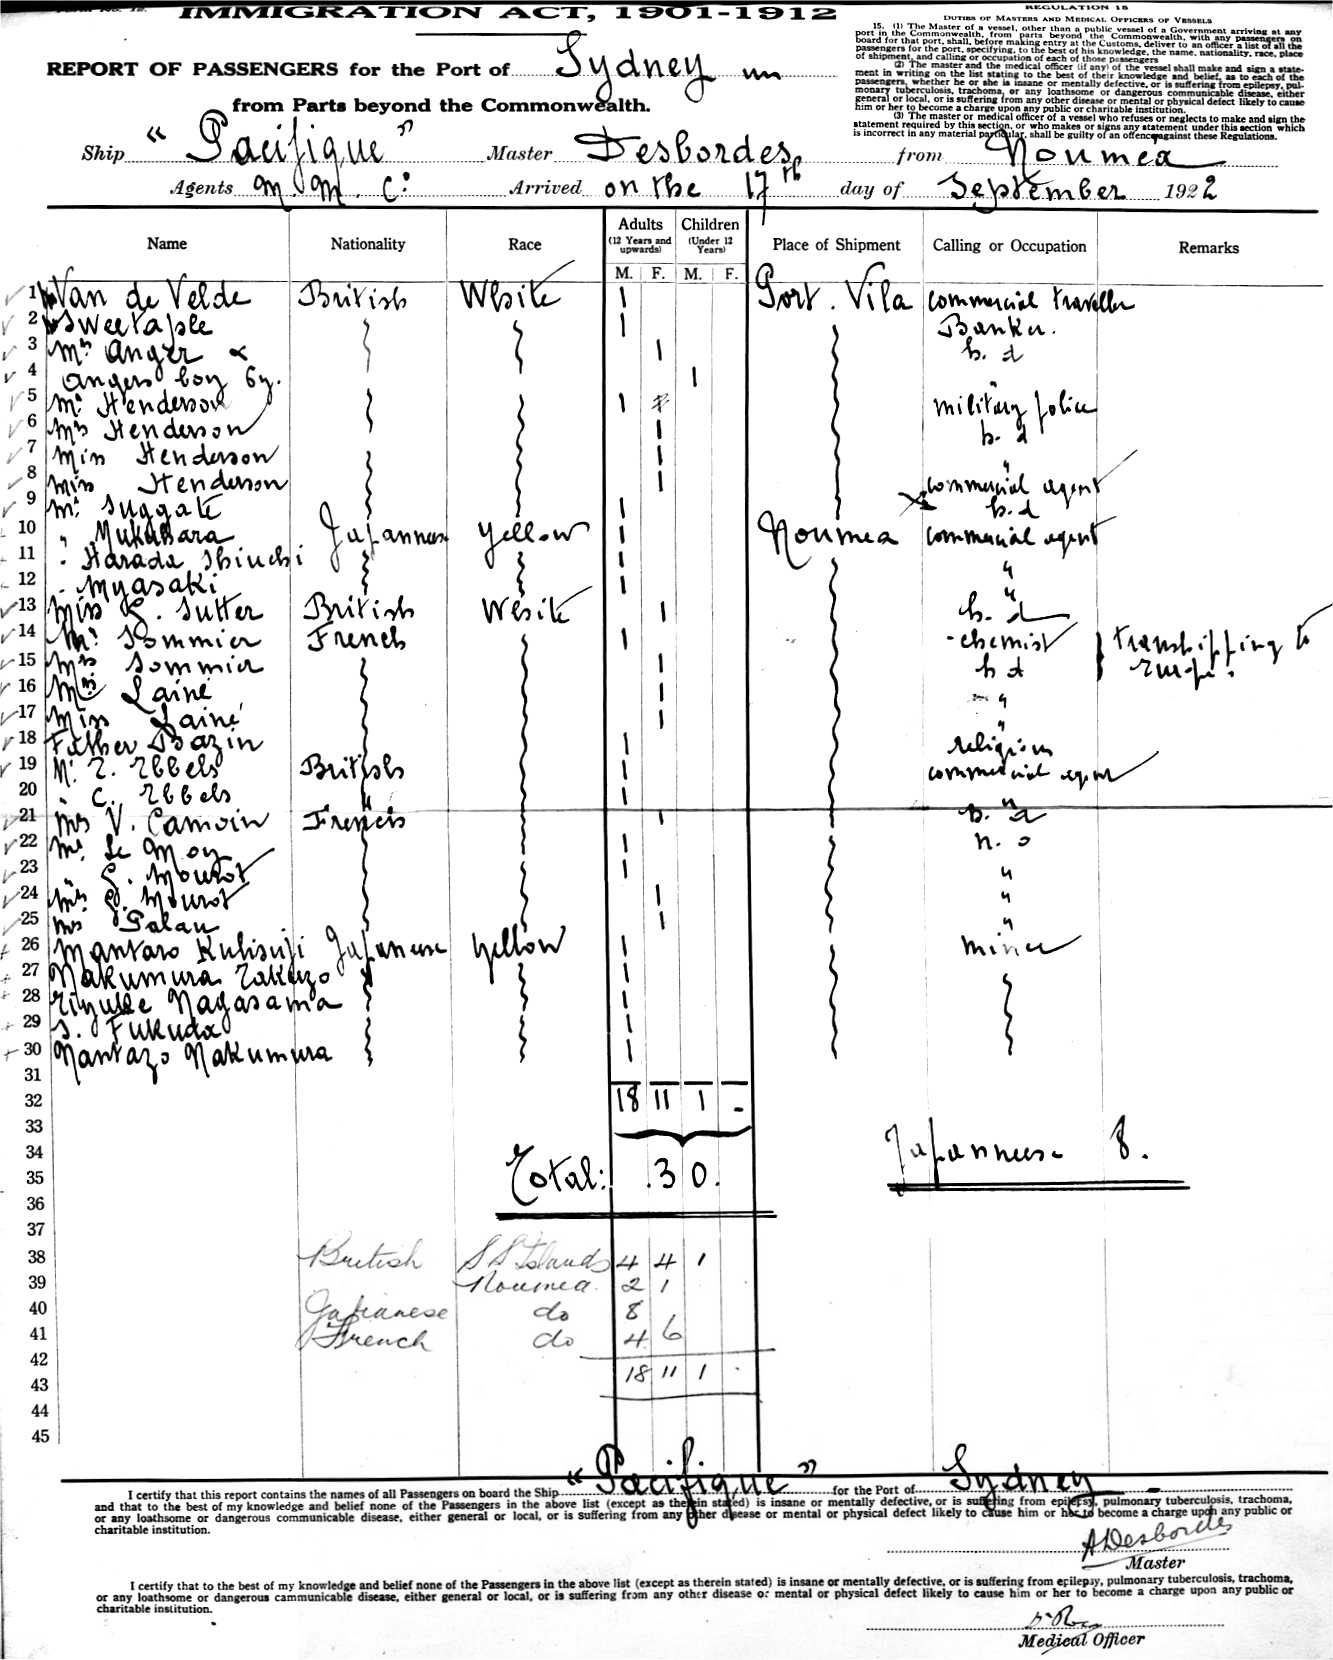 IMMIGRATION ACT, 1901-1912
REPORT OF PASSENGERS for the Port of Sydney
from Parts beyond the Commonwealth.
REGULATION 15
DUTIES OF MASTERS AND MEDICAL OFFICERS OF VESSELS
15. (1) The Master of a vessel, other than a public vessel of a Government arriving at any
port in the Commonwealth, from parts beyond the Commonwealth, with any passengers on
board for that port, shall, before making entry at the Customs, deliver to an officer a list of all the
passengers for the port, specifying, to the best of his knowledge, the name, nationality, race, place
of shipment, and calling or occupation of each of those passengers
(2) The master and the medical officer (if any) of the vessel shall make and sign a state-
ment in writing on the list stating to the best of their knowledge and belief, as to each of the
passengers, whether he or she is insane or mentally defective, or is suffering from epilepsy, pul-
monary tuberculosis, trachoma, or any loathsome or dangerous communicable disease, either
general or local, or is suffering from any other disease or mental or physical defect likely to cause
him or her to become a charge upon any public or charitable institution.
(3) The master or medical officer of a vessel who refuses or neglects to make and sign the
statement required by this section, or who makes or signs any statement under this section which
is incorrect in any material particular, shall be guilty of an offence against these Regulations.
Ship "Pacifique" Master Desbordes, from Noumea
Agents M M. Co: Arrived on the 17th day of September 1922
Name Nationality Race Adults (12 Years and upwards) Children (Under 12 Years) Place of Shipment Calling or Occupation Remarks
M. F. M. F.
1 Van de Velde British White 1 Port. Vila commercial traveller
2 Sweetaple 1 Banker.
3 Mrs Anger 1 h. d
4 Angers boy 6y. 1 "
5 Mr Henderson 1 military police
6 Mrs Henderson 1 h. d
7 Miss Henderson 1 "
8 Miss Henderson 1 commercial agent
9 Mr. Suggate 1 h. d
10 " Mukahara Japannese yellow 1 Noumea commercial agent
11 " Harada Shiuchi 1 "
12 " Myasaki 1 "
13 Miss G. Sutter British White 1 h. d
14 Mr. Sommier French 1 chemist } transhipping to
15 Mrs Sommier 1 h d Europe.
16 Mrs Lainé 1 "
17 Miss Lainé 1 "
18 Father Bazin 1 religious
19 Mr. E. Ebbels British 1 commercial agent
20 " C. Ebbels " 1 "
21 Mrs V. Camoin French 1 h. d
22 Mr. Le Moy 1 n. o
23 " G. Mourot 1 "
24 Mrs G. Mourot 1 "
25 Mrs Palau 1 "
26 Mantaro Kulisuji Japanese yellow 1 miner
27 Nakumura Takezo 1
28 Nagasama 1
29 S. Fukuda 1
30 Nantazo Nakumura 1
31
32 18 11 1 -
33
34 Japannese 8.
35 Total: .30.
36
37
38 British S S Islands 4 4 1
39 Noumea. 2 1
40 Japanese do 8
41 French do 4 6
42
43 18 11 1 .
44
45
I certify that this report contains the names of all Passengers on board the Ship "Pacifique" for the Port of Sydney
and that to the best of my knowledge and belief none of the Passengers in the above list (except as therein stated) is insane or mentally defective, or is suffering from epilepsy, pulmonary tuberculosis, trachoma,
or any loathsome or dangerous communicable disease, either general or local, or is suffering from any other disease or mental or physical defect likely to cause him or her to become a charge upon any public or
charitable institution.
A Desbordes
Master
I certify that to the best of my knowledge and belief none of the Passengers in the above list (except as therein stated) is insane or mentally defective, or is suffering from epilepsy, pulmonary tuberculosis, trachoma,
or any loathsome or dangerous cammunicable disease, either general or local, or is suffering from any other disease or mental or physical defect likely to cause him or her to become a charge upon any public or
charitable institution.
Medical Officer